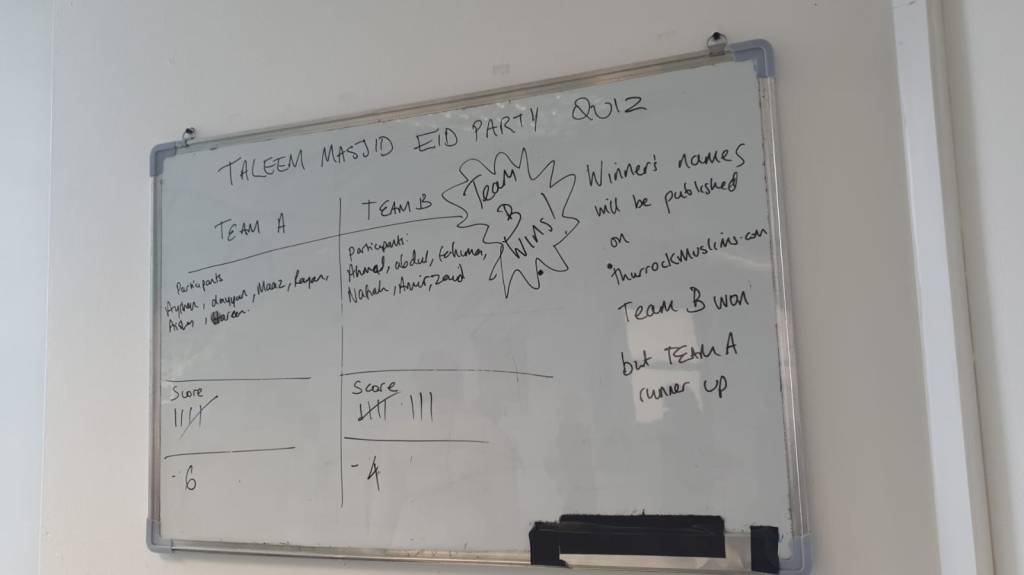 TALEEM MASJID EID PARTY QUIZ
TEAM A
Participants
Maaz, Rayan,
Score
- 6
TEAM B
Participants:
Ahmad, abdul,
Amir, Zaid
Score
- 4
Team
B
Wins!
Winner's names
will be published
on
thurrockmuslims.com
Team B won
but TEAM A
runner up